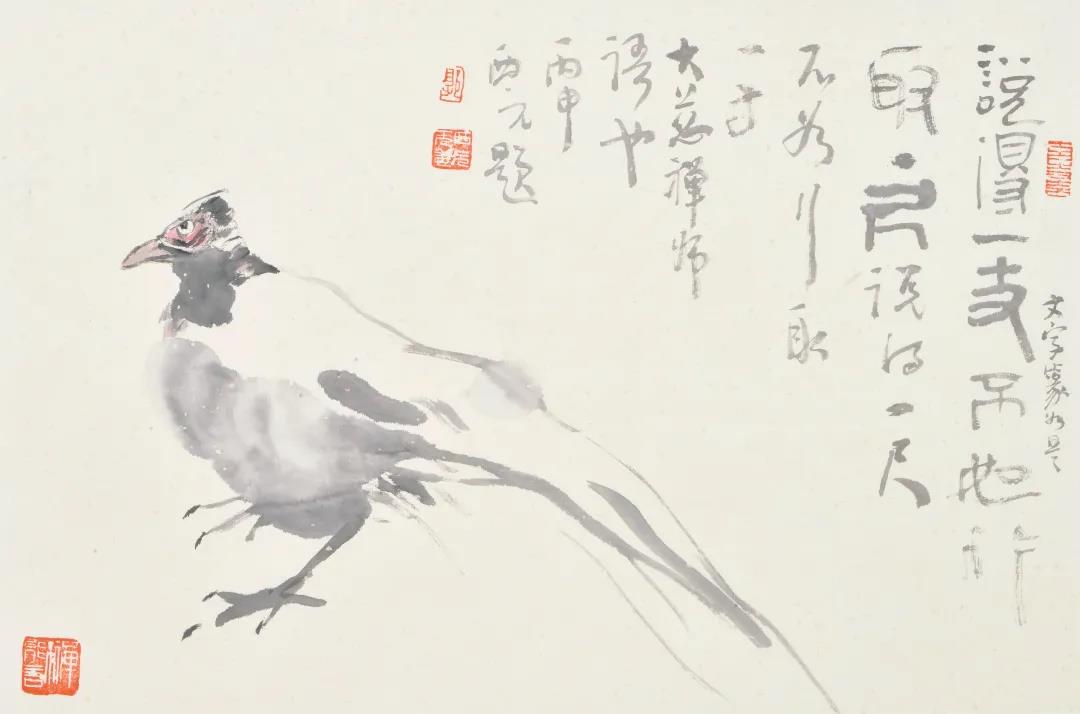 文字如是
說得一丈不如行
取一尺說得一尺
不如行取
一寸
大慈禪師
語也
丙申
西元題